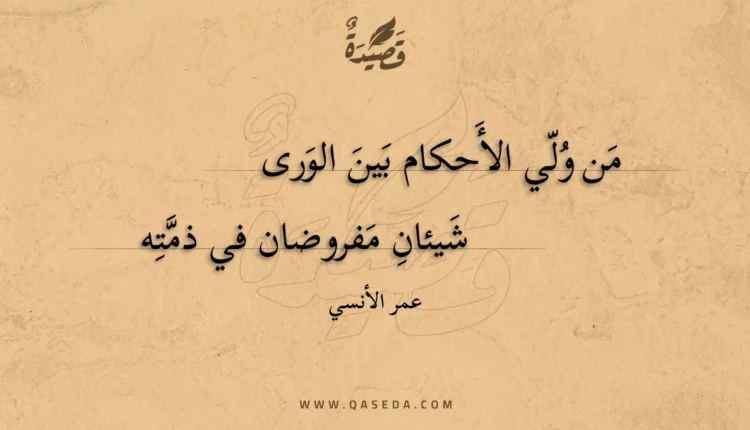 قَصِيْدَةٌ
مَن وُلّي الأَحكام بَينَ الوَرى
شَيئانِ مَفروضان في ذمَّتِه
عمر الأنسي
WWW.QASEDA.COM